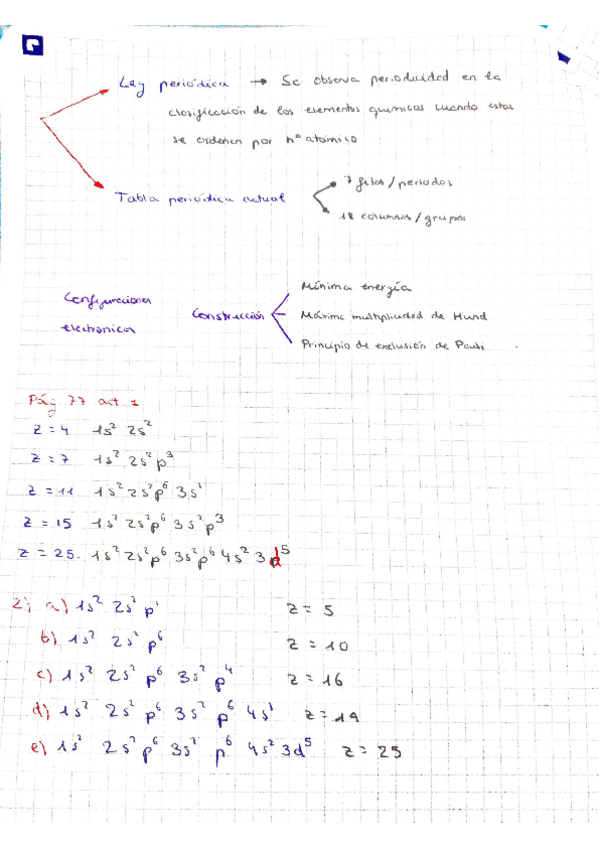 Ley periódica → Se observa periodicidad en la
clasificación de los elementos químicos cuando estos
se ordenan por nº atómico
Tabla periódica actual
7 filas / periodos
18 columnas / grupos
Configuraciones
electrónicas
Construcción
Mínima energía
Máxima multiplicidad de Hund
Principio de exclusión de Pauli
Pág 77 act 1
Z = 4 1s² 2s²
Z = 7 1s² 2s² p³
Z = 11 1s² 2s² p⁶ 3s¹
Z = 15 1s² 2s² p⁶ 3s² p³
Z = 25. 1s² 2s² p⁶ 3s² p⁶ 4s² 3d⁵
2; a) 1s² 2s² p¹ Z = 5
b) 1s² 2s² p⁶ Z = 10
c) 1s² 2s² p⁶ 3s² p⁴ Z = 16
d) 1s² 2s² p⁶ 3s² p⁶ 4s¹ Z = 19
e) 1s² 2s² p⁶ 3s² p⁶ 4s² 3d⁵ Z = 25